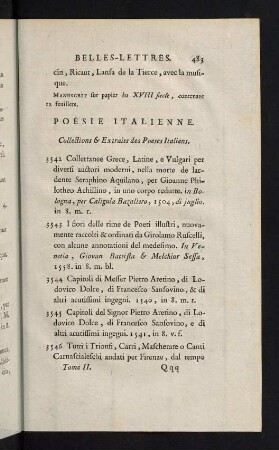 BELLES-LETTRES. 483
cin, Ricaut, Lansa de la Tierce, avec la musi-
que.
MANUSCRIT sur papier du XVIII siecle, contenant
12 feuillets.
POÉSIE ITALIENNE.
Collections & Extraits des Poetes Italiens.
3542 Collettanee Grece, Latine, e Vulgari per
diversi auctori moderni, nella morte de lar-
dente Seraphino Aquilano, per Gioanne Phi-
lotheo Achillino, in uno corpo redutte. in Bo-
logna, per Caligula Bazaliero, 1504, di juglio.
in 8. m. r.
3543 I fiori delle rime de Poeti illustri, nuovamente
raccolti & ordinati da Girolamo Ruscelli,
con alcune annotationi del medesimo. In Ve-
netia, Giovan Battista & Melchior Sessa,
1558. in 8. m. bl.
3544 Capitoli di Messer Pietro Aretino, di Lo-
dovico Dolce, di Francesco Sansovino, & di
altri acutissimi ingegni. 1540, in 8. m. r.
3545 Capitoli del Signor Pietro Aretino, di Lo-
dovico Dolce, di Francesco Sansovino, e di
altri acutissimi ingegni. 1541, in 8. v. f.
3546 Tutti i Trionfi, Carri, Mascherate o Canti
Carnascialeschi andati per Firenze, dal tempo
Tome II. Qqq